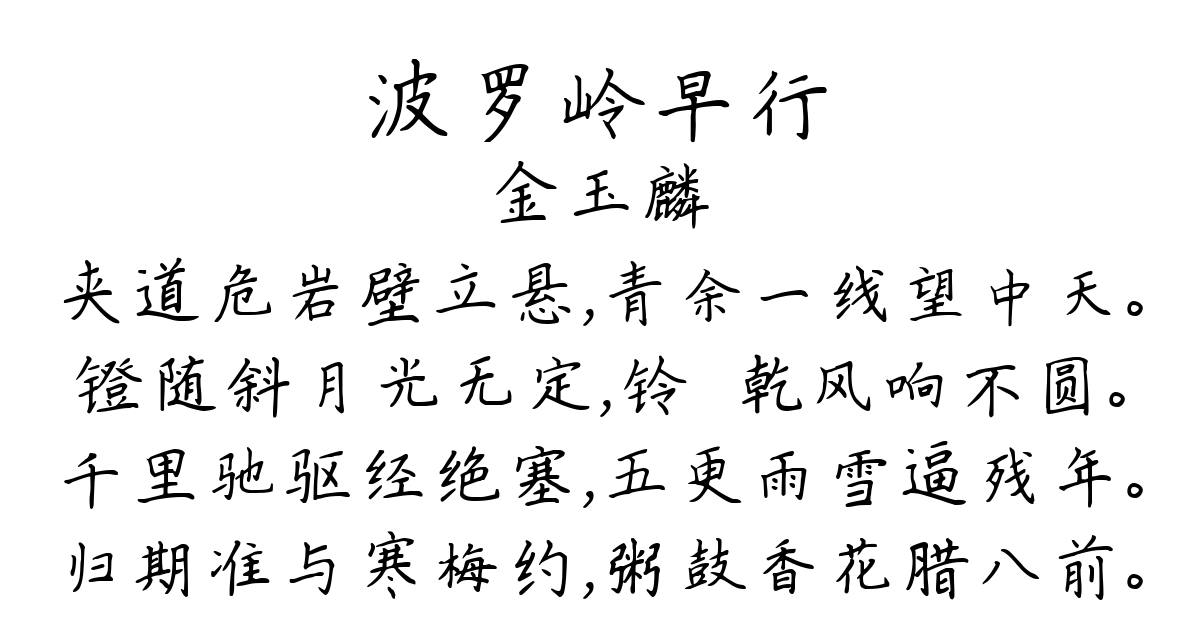 波罗岭早行
金玉麟
夹道危岩壁立悬,青余一线望中天。
镫随斜月光无定,铃 乾风响不圆。
千里驰驱经绝塞,五更雨雪逼残年。
归期准与寒梅约,粥鼓香花腊八前。